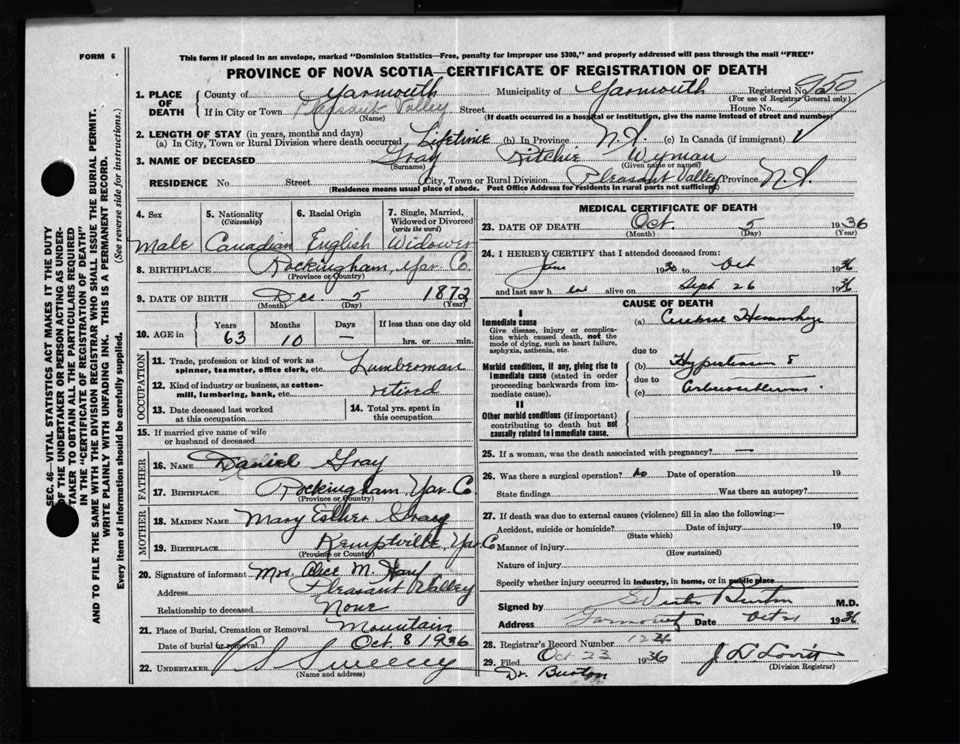 FORM 6
This form if placed in an envelope, marked "Dominion Statistics—Free, penalty for improper use $300," and properly addressed will pass through the mail "FREE"
PROVINCE OF NOVA SCOTIA—CERTIFICATE OF REGISTRATION OF DEATH
SEC. 46—VITAL STATISTICS ACT MAKES IT THE DUTY
OF THE UNDERTAKER OR PERSON ACTING AS UNDER-
TAKER TO OBTAIN ALL THE PARTICULARS REQUIRED
IN THE "CERTIFICATE OF REGISTRATION OF DEATH"
AND TO FILE THE SAME WITH THE DIVISION REGISTRAR WHO SHALL ISSUE THE BURIAL PERMIT.
WRITE PLAINLY WITH UNFADING INK. THIS IS A PERMANENT RECORD.
Every item of information should be carefully supplied. (See reverse side for instructions.)
1. PLACE OF DEATH County of Yarmouth Municipality of Yarmouth Registered No. 950
(For use of Registrar General only)
If in City or Town Pleasant Valley Street House No.
(Name) (If death occurred in a hospital or institution, give name instead of street and number)
2. LENGTH OF STAY (in years, months and days)
(a) In City, Town or Rural Division where death occurred Lifetime (b) In Province N.S. (c) In Canada (if immigrant)
3. NAME OF DECEASED Gray Ritchie Wyman
(Surname) (Given name or names)
RESIDENCE No. Street City, Town or Rural Division Pleasant Valley Province N.S.
(Residence means usual place of abode. Post Office Address for residents in rural parts not sufficient)
4. Sex 5. Nationality (Citizenship) 6. Racial Origin 7. Single, Married, Widowed or Divorced (write the word)
Male Canadian English Widower
8. BIRTHPLACE Rockingham, Yar Co.
(Province or Country)
9. DATE OF BIRTH Dec. 5 1872
(Month) (Day) (Year)
10. AGE in Years Months Days If less than one day old
63 10 — hrs. or min.
OCCUPATION
11. Trade, profession or kind of work as spinner, teamster, office clerk, etc. Lumberman
12. Kind of industry or business, as cotton-mill, lumbering, bank, etc. retired
13. Date deceased last worked at this occupation 14. Total yrs. spent in this occupation
15. If married give name of wife or husband of deceased
FATHER
16. NAME Daniel Gray
17. BIRTHPLACE Rockingham, Yar. Co
(Province or Country)
MOTHER
18. MAIDEN NAME Mary Esther Gray
19. BIRTHPLACE Kemptville, Yar. Co
(Province or Country)
20. Signature of informant Mrs. Alice M.
Address Pleasant Valley
Relationship to deceased None
21. Place of Burial, Cremation or Removal Mountain
Date of burial or removal Oct. 8 1936
22. UNDERTAKER V S Sweeney
(Name and address)
MEDICAL CERTIFICATE OF DEATH
23. DATE OF DEATH Oct. 5 1936
(Month) (Day) (Year)
24. I HEREBY CERTIFY that I attended deceased from:
1936 to Oct 1936
and last saw h alive on Sept 26 1936
CAUSE OF DEATH
I
Immediate cause
Give disease, injury or complication which caused death, not the mode of dying, such as heart failure, asphyxia, asthenia, etc.
(a)
due to
Morbid conditions, if any, giving rise to immediate cause (stated in order proceeding backwards from immediate cause).
(b)
due to
(c)
II
Other morbid conditions (if important) contributing to death but not causally related to immediate cause.
25. If a woman, was the death associated with pregnancy? —
26. Was there a surgical operation? no Date of operation 19
State findings Was there an autopsy?
27. If death was due to external causes (violence) fill in also the following:—
Accident, suicide or homicide? Date of injury 19
(State which)
Manner of injury
(How sustained)
Nature of injury
Specify whether injury occurred in industry, in home, or in public place
Signed by Burton M.D.
Address Yarmouth Date Oct 21 1936
28. Registrar's Record Number 124
29. Filed Oct 23 1936 J. D. Lovitt
(Division Registrar)
Dr. Burton